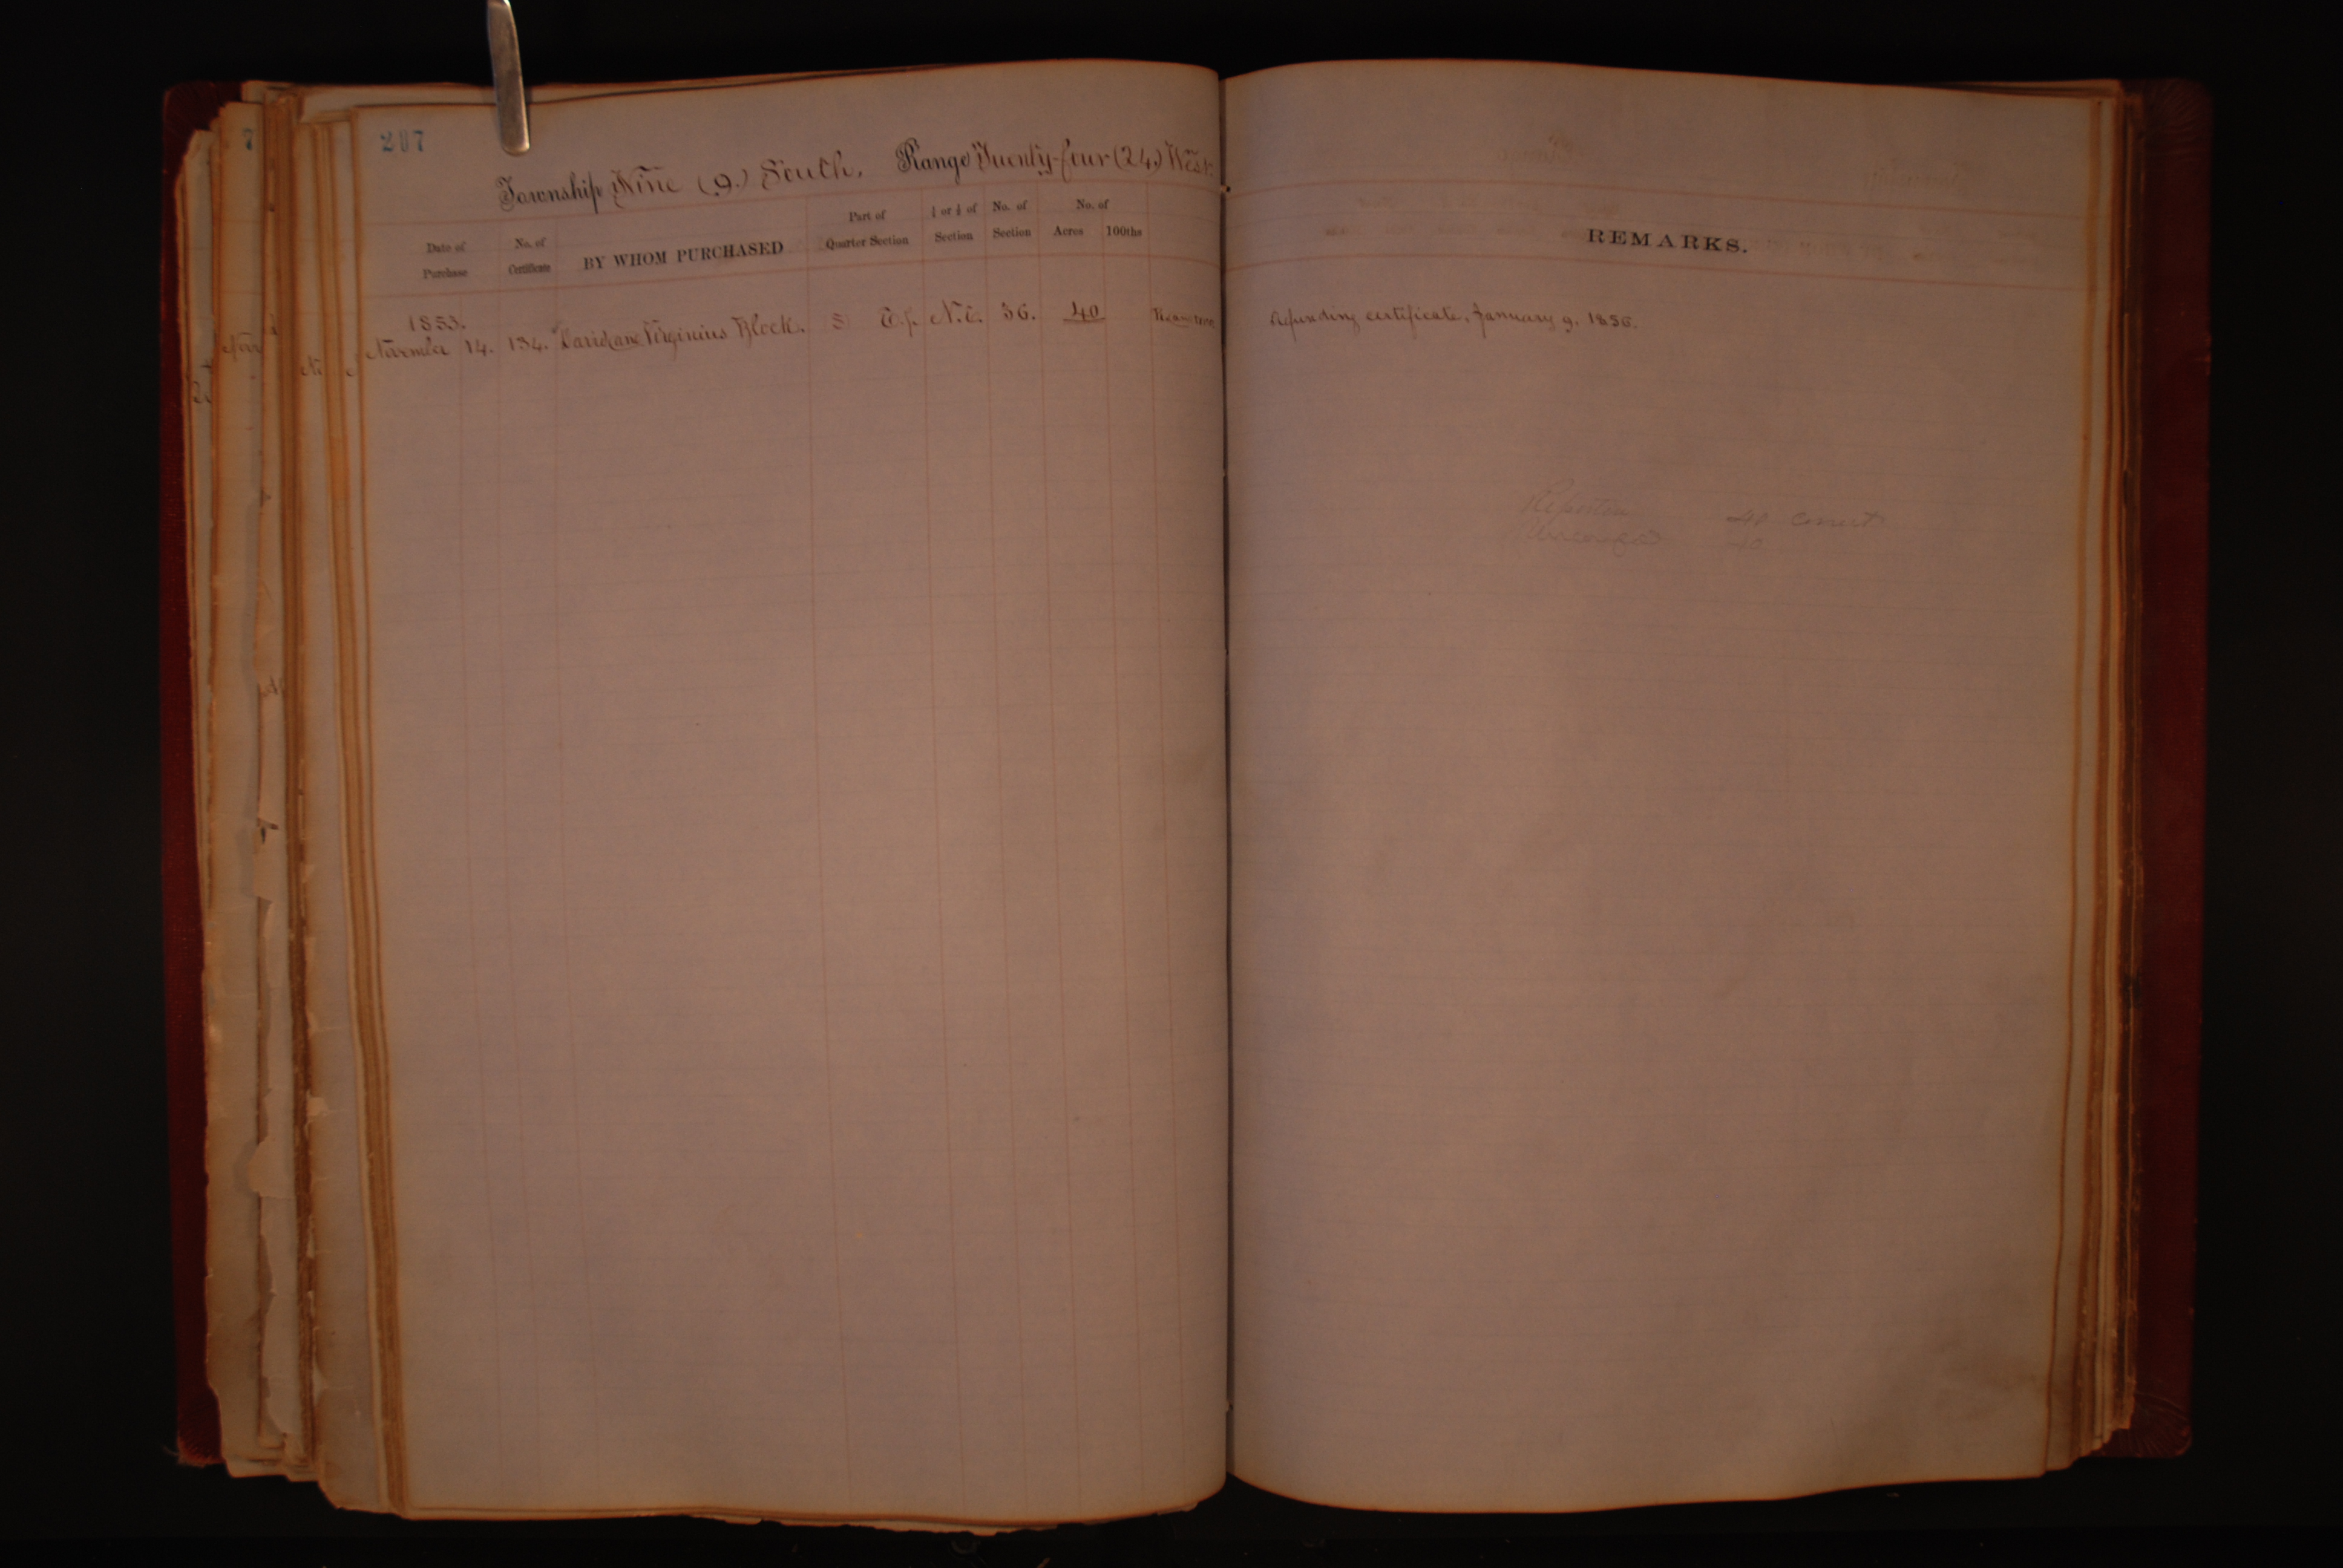 207
Township Nine (9.) South. Range Twenty-four (24.) West.
Date of Purchase No. of Certificate BY WHOM PURCHASED Part of Quarter Section ¼ or ½ of Section No. of Section No. of Acres 100ths REMARKS.
1853.
November 14. 134. David and Virginius Block. S E.p. N.E. 36. 40 Refunding certificate, January 9, 1856.
40 correct
40